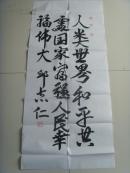 人类世界和平共
處国家富强人民幸
福伟大 邱志仁